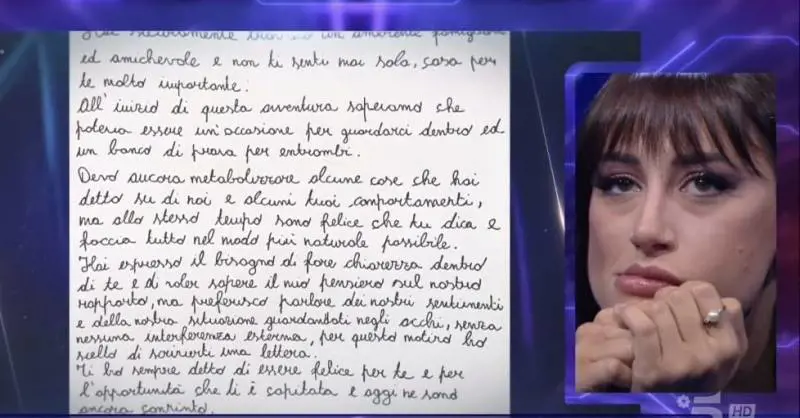 Hai sicuramente trovato un ambiente famigliare
ed amichevole e non ti senti mai sola, cosa per
te molto importante.
All'inizio di questa avventura sapevamo che
poteva essere un'occasione per guardarci dentro ed
un banco di prova per entrambi.
Devo ancora metabolizzare alcune cose che hai
detto su di noi e alcuni tuoi comportamenti,
ma allo stesso tempo sono felice che tu dica e
faccia tutto nel modo più naturale possibile.
Hai espresso il bisogno di fare chiarezza dentro
di te e di voler sapere il mio pensiero sul nostro
rapporto, ma preferisco parlare dei nostri sentimenti
e della nostra situazione guardandoti negli occhi, senza
nessuna interferenza esterna, per questo motivo ho
scelto di scriverti una lettera.
Ti ho sempre detto di essere felice per te e per
l'opportunità che ti è capitata e oggi ne sono
ancora convinto.
5
HD